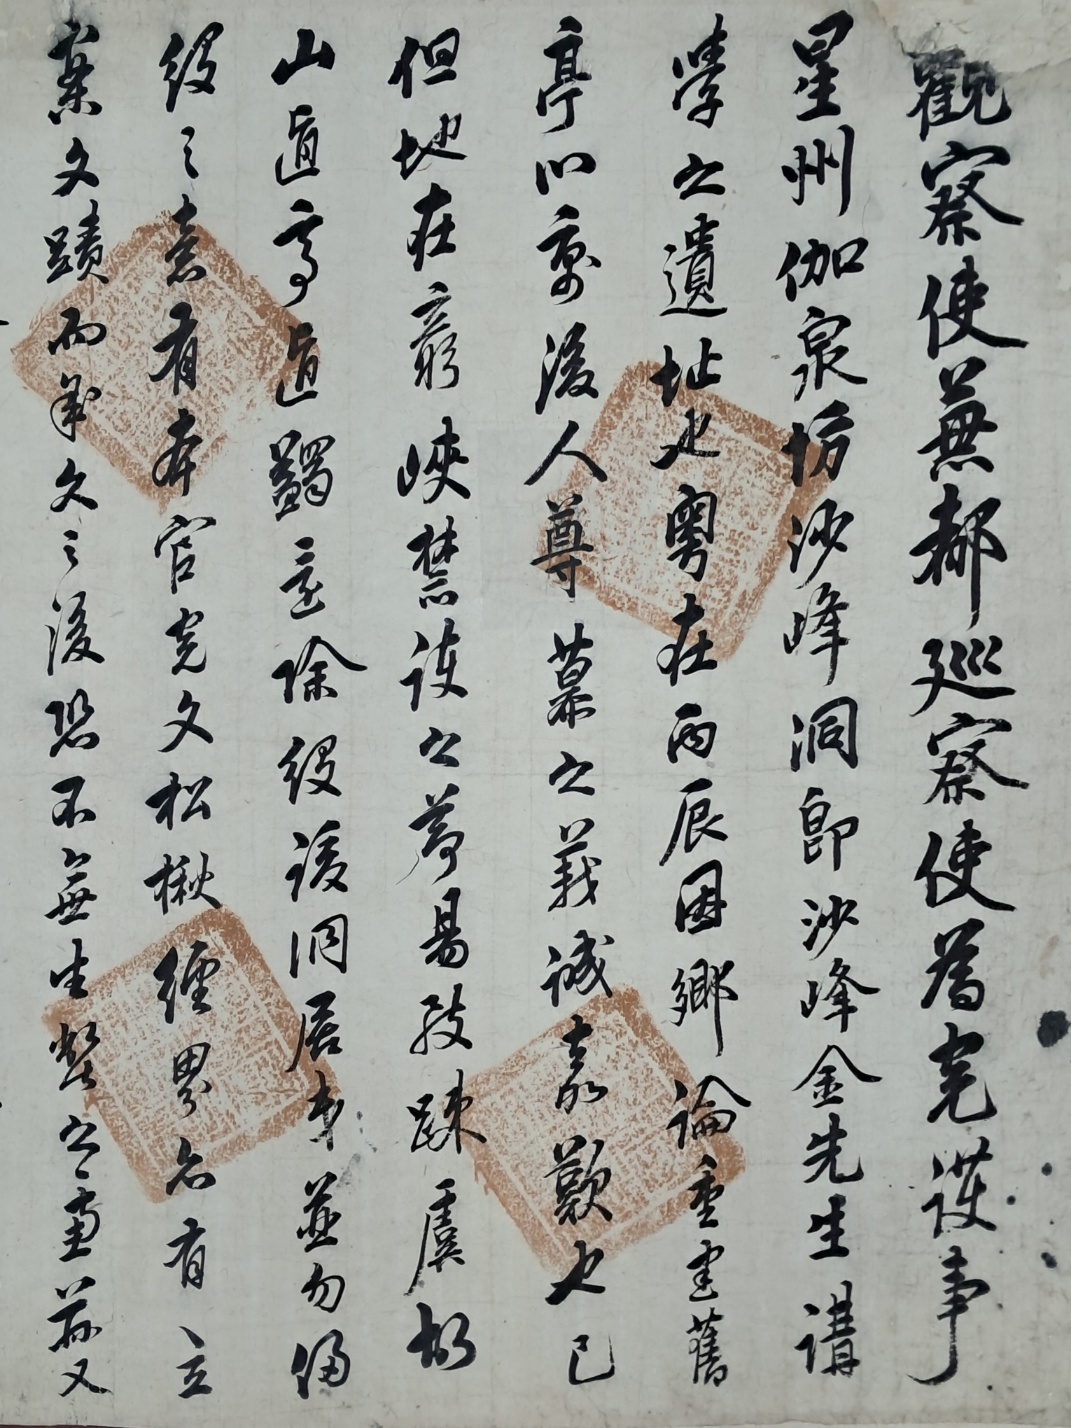 觀察使兼都巡察使爲完護事
星州伽泉坊沙峰洞卽沙峰金先生講
學之遺址也粤在丙辰因鄕論重建舊
亭以寓後人尊慕之義誠嘉歎也已
但地在窮峽禁護之節易致踈虞故
山直亭直蠲還除役後洞居等並勿侵
役之意有本官完文松楸經界亦有立
案文蹟而年久之後恐不無生弊之慮玆又